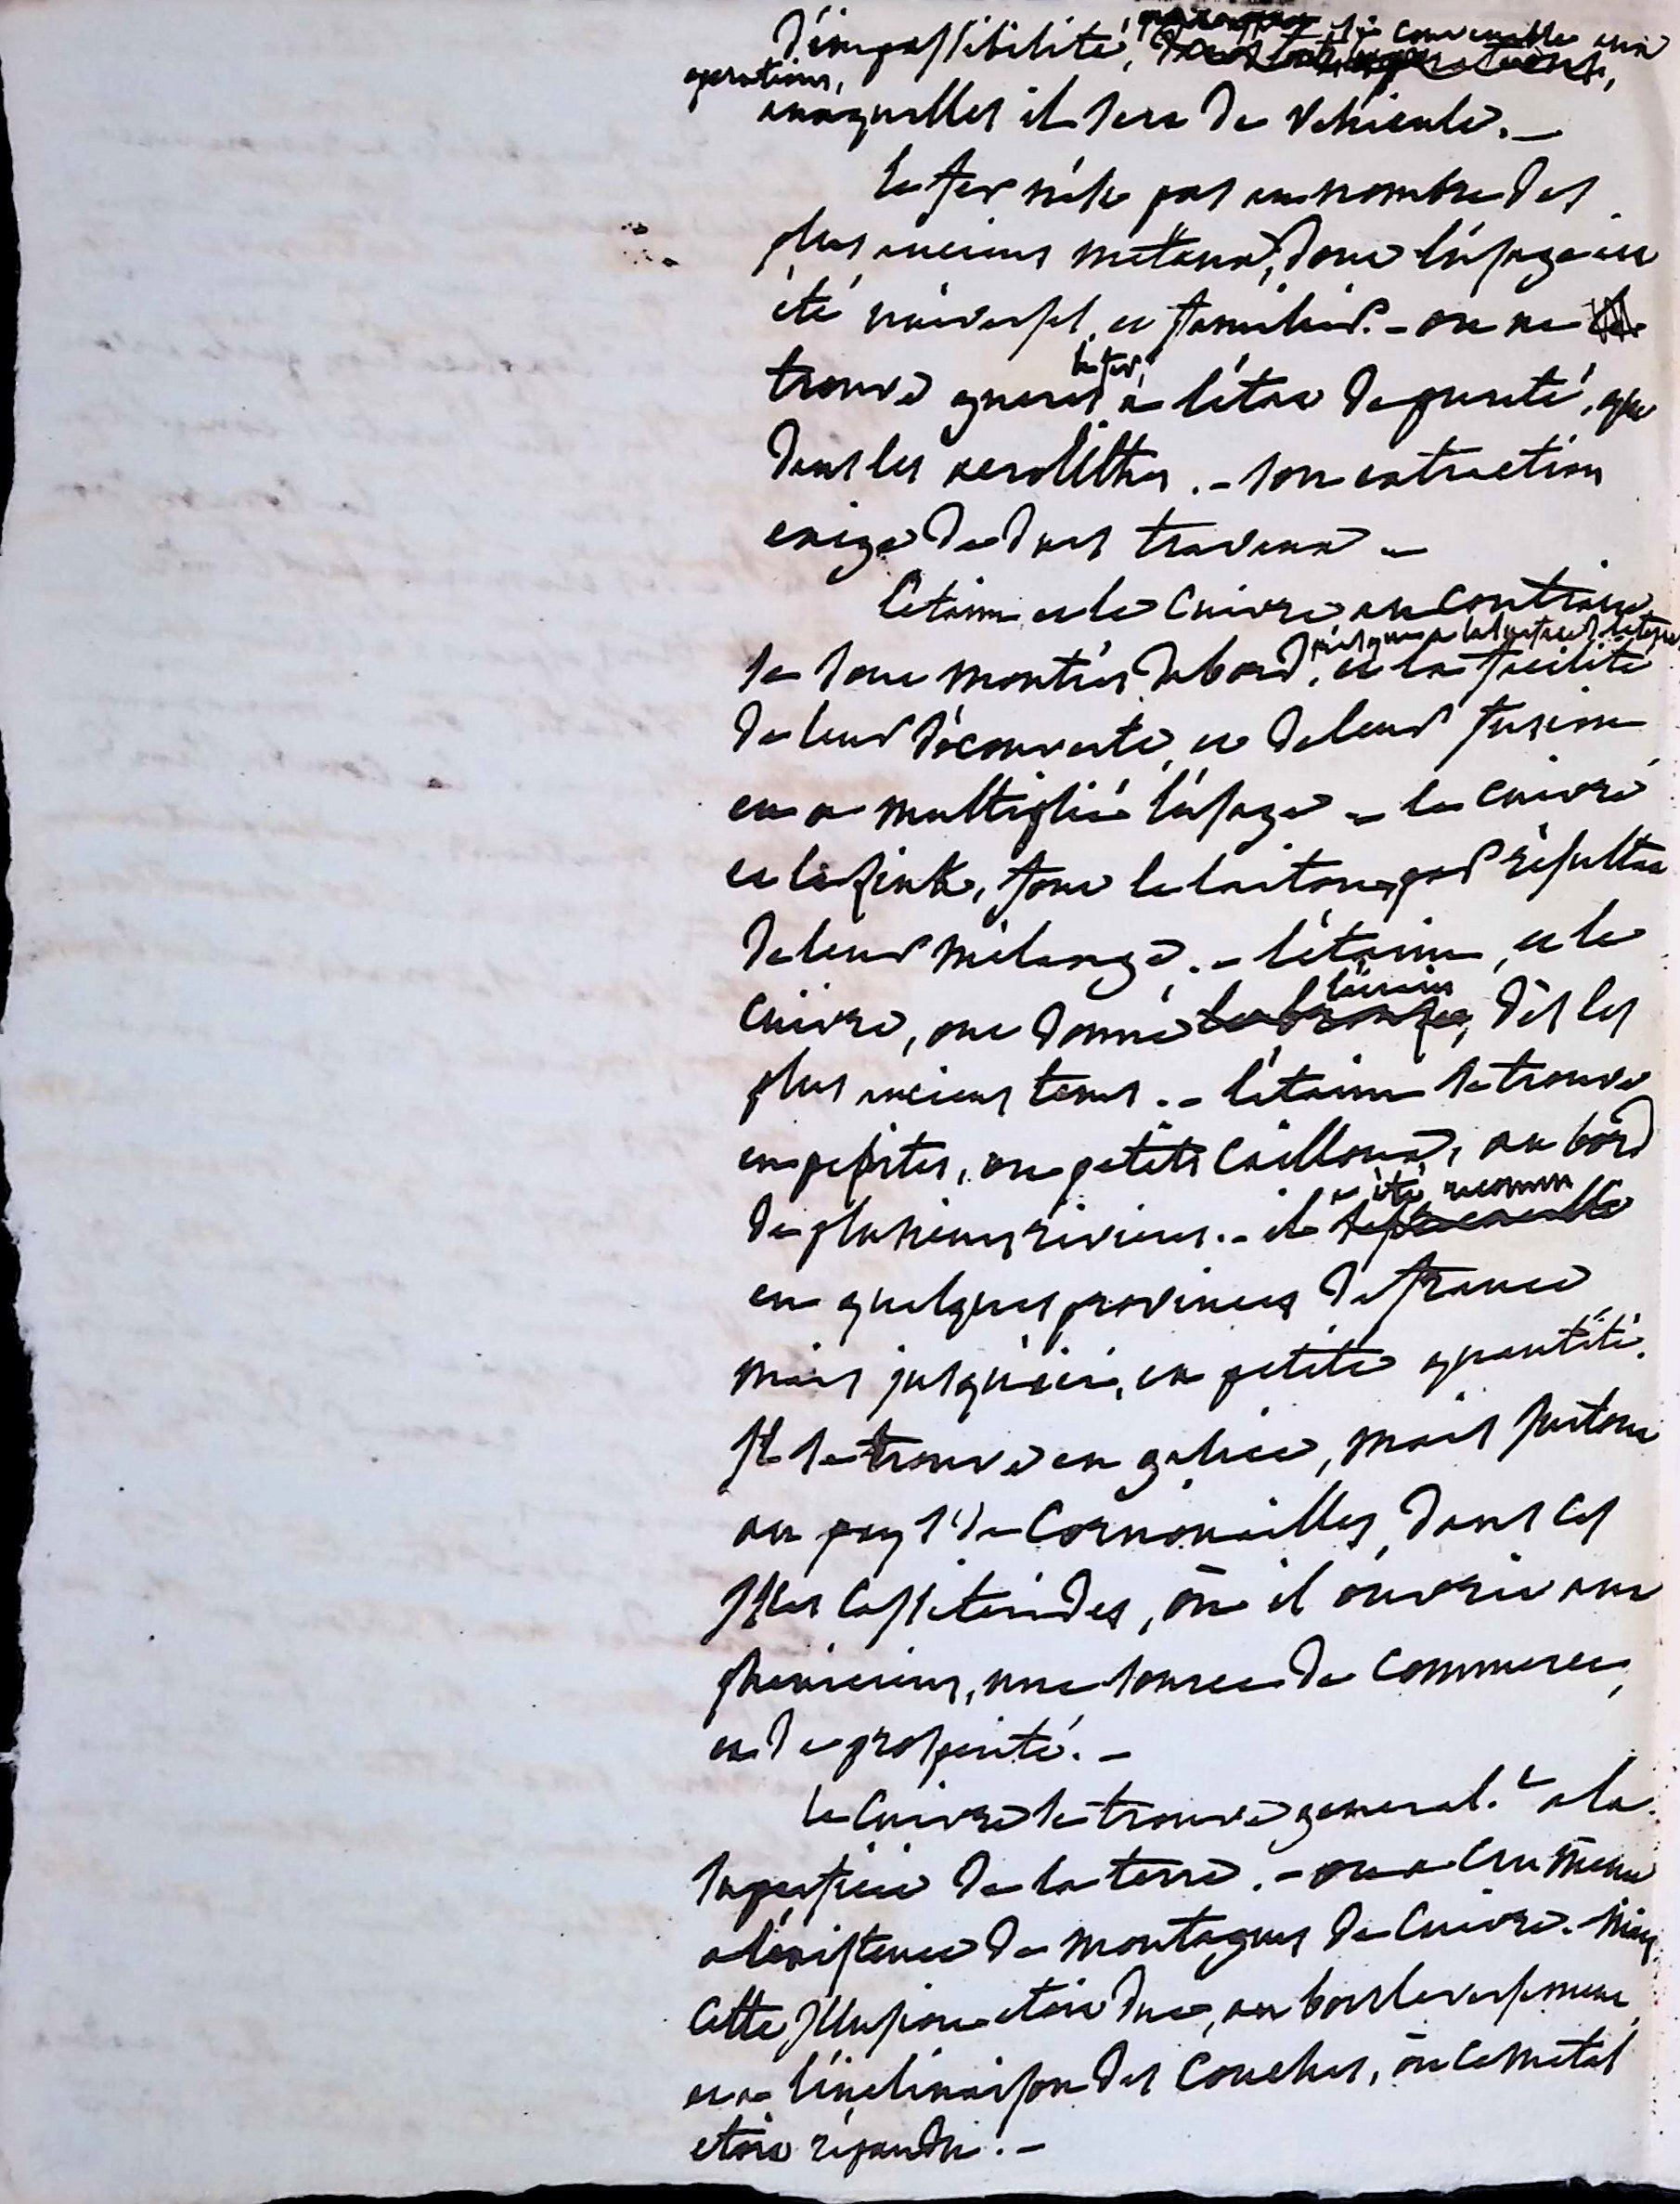 d'impassibilité, si convenable aux
operations,
auxquelles il sera de vehicule. —
le fer n'est pas au nombre des
plus anciens métaux, dont l'usage ait
été universel, et familier. - on ne
trouve gueres le fer, à l'état de pureté, que
dans les aerolithes. - son extraction
exige de durs travaux —
L'étain et le cuivre au contraire
se sont montrés dabord, presque a la surface de la terre, et la facilité
de leur découverte, et de leur fusion
en a multiplié l'usage - le cuivre
et le zink, font le laiton, par résultat
de leur mélange. - l'étain, et le
cuivre, ont donné l'airain, dès les
plus anciens tems. - l'étain se trouve
en pepites, ou petits cailloux, au bord
de plusieurs rivieres. - il a été reconnu
en quelques provinces de france
mais jusqu'ici, en petite quantité.
Il se trouve en galice, mais surtout
au pays de Cornouailles, dans les
Isles Cassiterides, où il ouvrit aux
pheniciens, une source de commerce,
et de prosperité. —
Le Cuivre se trouve general.t à la
superficie de la terre. - on a cru même
a l'existence de montagnes de Cuivre. Mais
Cette Illusion etait due, au bouleversement,
et a l'inclinaison des Couches, où ce métal
etait répandu. —